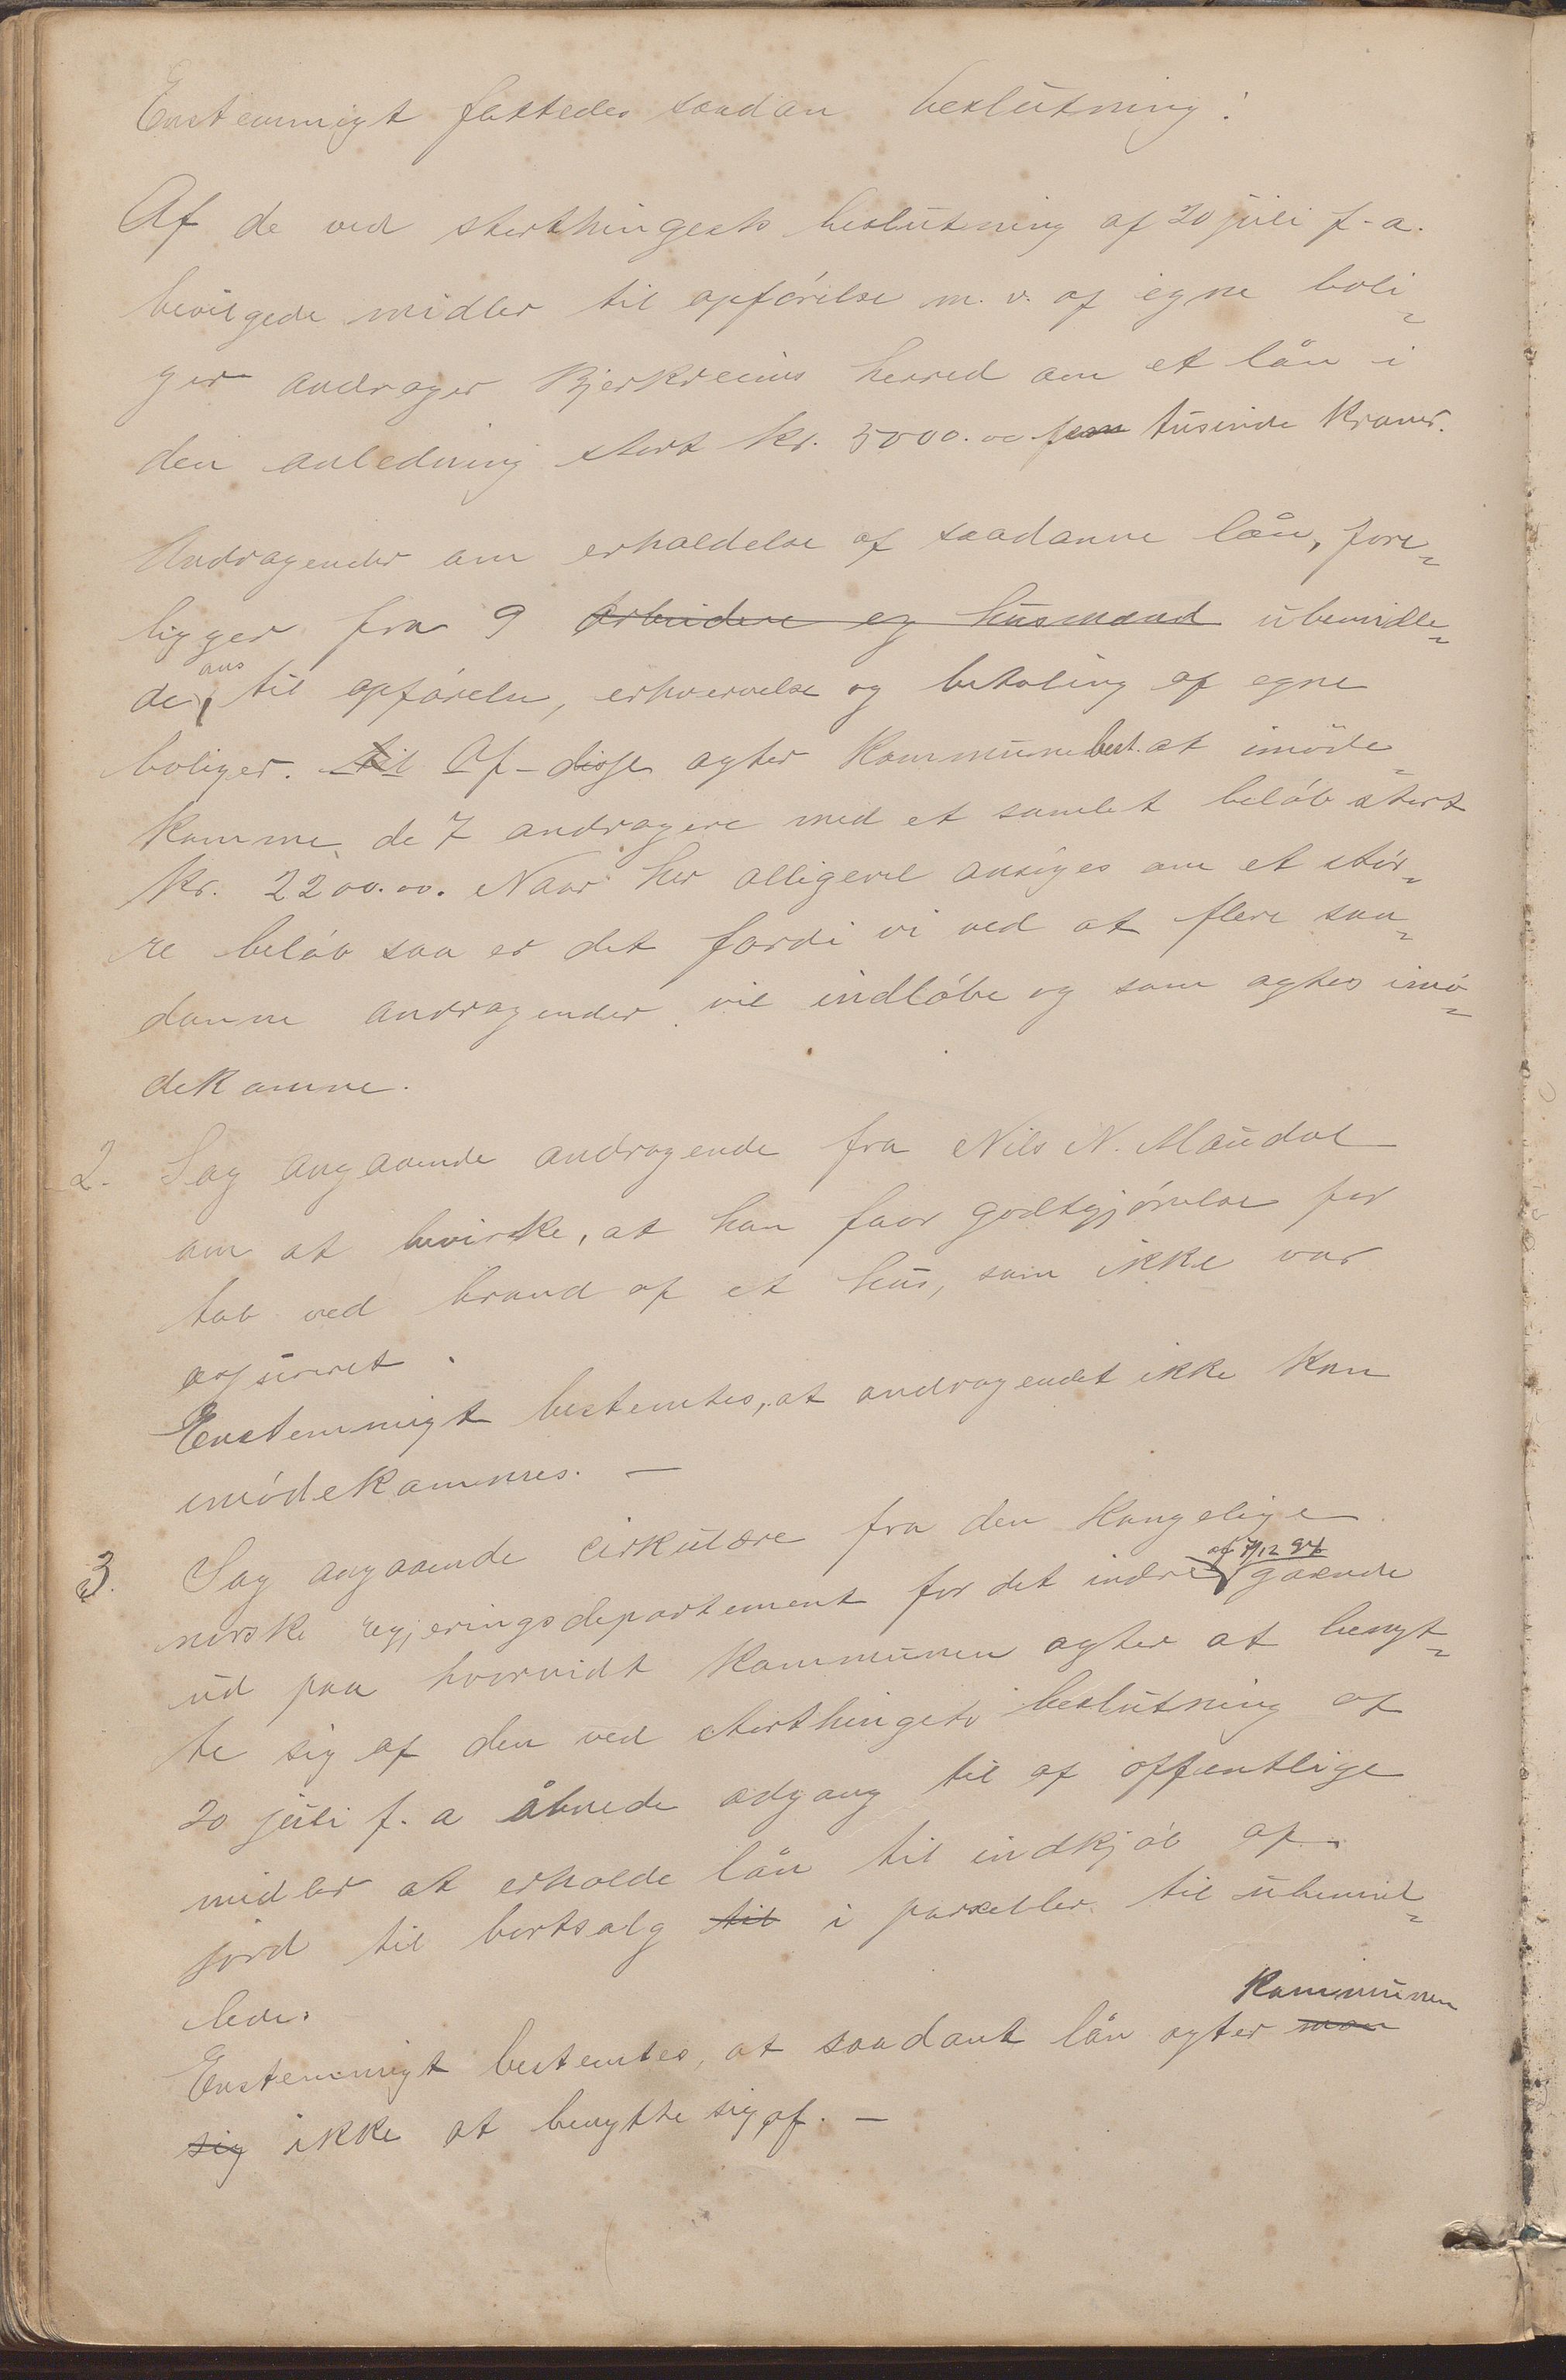 Enstemmigt fattedes saadan beslutning:
Af de ved storthingets beslutning af 20 juli f. a.
bevilgede midler til opførelse m. v. af egne boli-
ger andrager Bjerkreims herred om et lån i
den anledning stort kr. 5000.00 fem tusinde kroner.
Andragender om erholdelse af saadanne lån, fore-
ligger fra 9 arbeidere og husmænd ubemidle-
de, til opførelse, erhvervelse og betaling af egne
boliger. til Af disse agter kommunebest. at imøde-
komme de 7 andragere med et samlet beløb stort
kr. 2200.00. Naar her alligevel ansøges om et stør-
re beløb saa er det fordi vi ved at flere saa-
danne andragender vil indløbe og som agtes imø-
dekomme.
2. Sag angaaende andragende fra Nils N. Maudal
om at bevirke, at han faar godtgjørelse for
tab ved brand af et hus, som ikke var
assureret.
Enstemmigt bestemtes, at andragendet ikke kan
imødekommes. —
3. Sag angaaende cirkulære fra den kongelige
af 7/12 94
norske regjeringsdepartement for det indre gaaende
ud paa hvorvidt kommunen agter at benyt-
te sig af den ved storthingets beslutning af
20 juli f. a åbnede adgang til af offentlige
midler at erholde lån til indkjøb af
jord til bortsalg til i parseller til ubemid-
lede.
kommunen
Enstemmigt bestemtes, at saadant lån agter man
sig ikke at benytte sig af. —